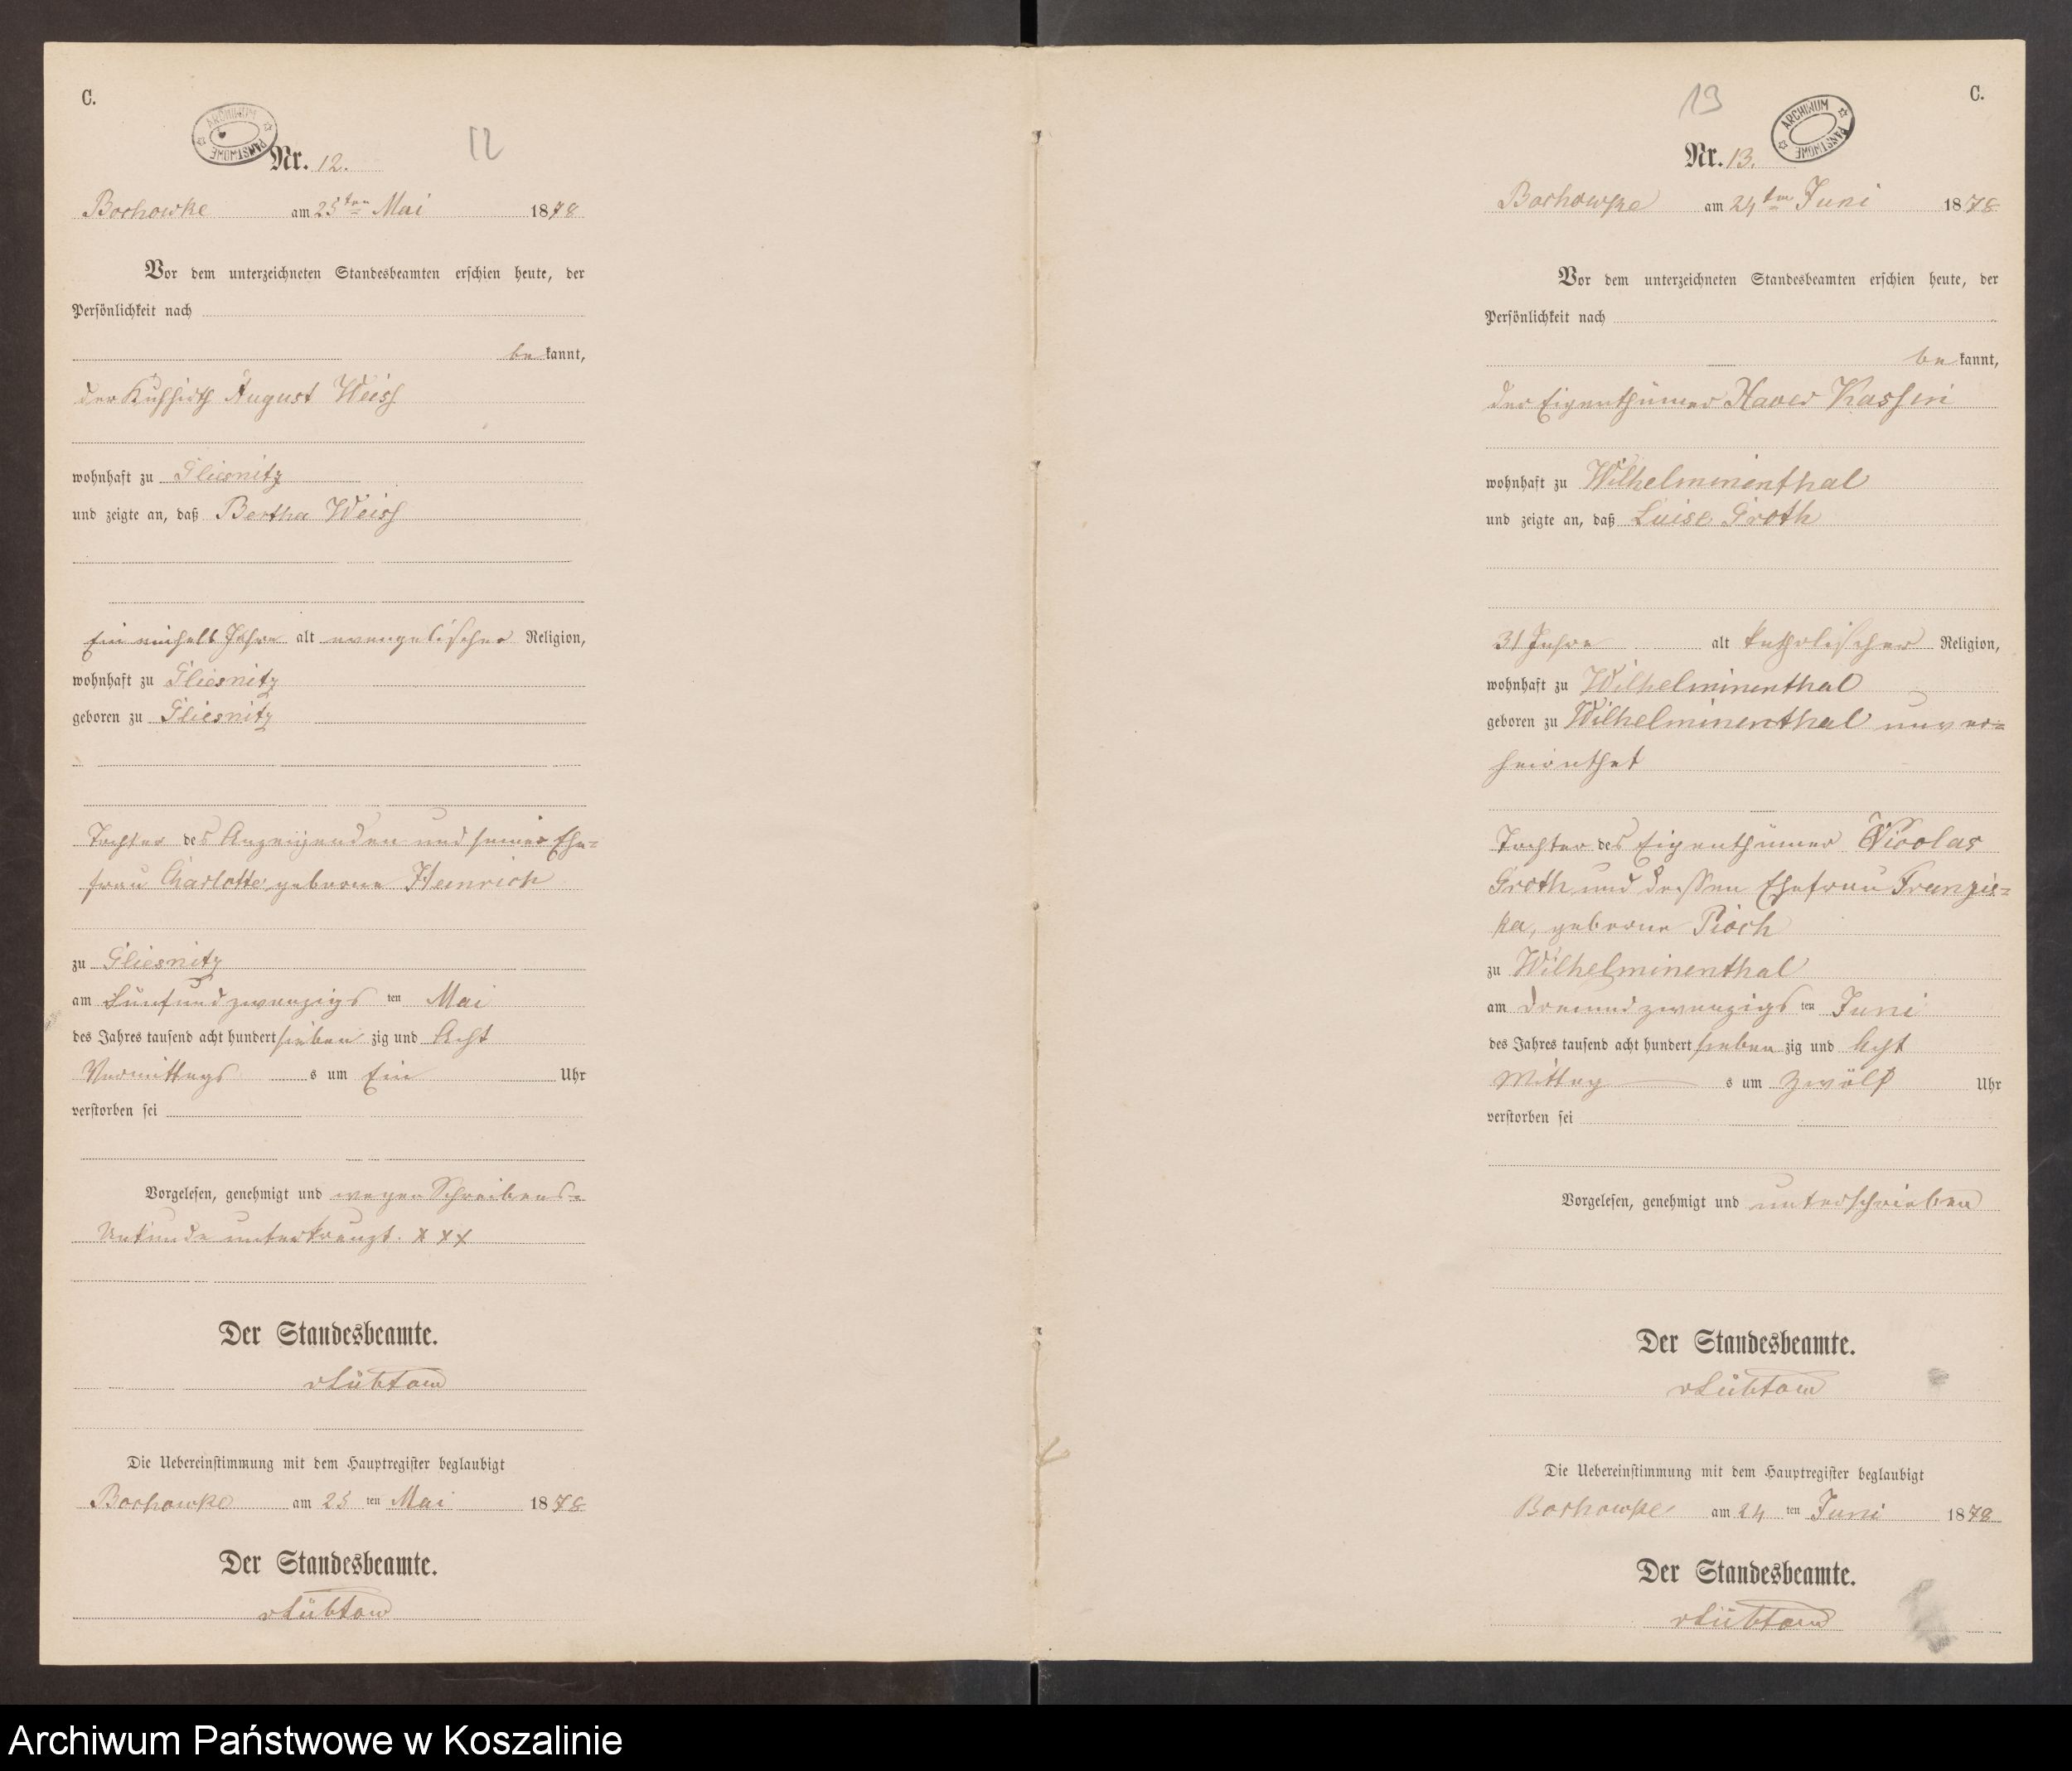 C.
ARCHIWUM PAŃSTWOWE
12
Nr. 12.
Borkowke am 25ten Mai 1878
Vor dem unterzeichneten Standesbeamten erschien heute, der
Persönlichkeit nach
be kannt,
der Kuhhirth August Weiss
wohnhaft zu Gliesnitz
und zeigte an, daß Bertha Weiss
Ein einhalb Jahre alt evangelischer Religion,
wohnhaft zu Gliesnitz
geboren zu Gliesnitz
Tochter des Anzeigenden und seiner Ehe=
frau Charlotte geborne Heinrich
zu Gliesnitz
am fünfundzwanzigs ten Mai
des Jahres tausend acht hundert sieben zig und Acht
Vormittags s um Ein Uhr
verstorben sei
Vorgelesen, genehmigt und wegen Schreibens=
Unkunde unterkreuzt. x x x
Der Standesbeamte.
vLübtow
Die Uebereinstimmung mit dem Hauptregister beglaubigt
Borkowke am 25 ten Mai 1878
Der Standesbeamte.
vLübtow
13
C.
ARCHIWUM PAŃSTWOWE
Nr. 13.
Borkowke am 24ten Juni 1878
Vor dem unterzeichneten Standesbeamten erschien heute, der
Persönlichkeit nach
be kannt,
der Eigenthümer Xaver
wohnhaft zu Wilhelminenthal
und zeigte an, daß Luise Groth
31 Jahre alt katholischer Religion,
wohnhaft zu Wilhelminenthal
geboren zu Wilhelminenthal unver=
heirathet
Tochter des Eigenthümer Nicolas
Groth und dessen Ehefrau Franzis=
ka, geborne
zu Wilhelminenthal
am dreiundzwanzigs ten Juni
des Jahres tausend acht hundert sieben zig und Acht
Mittag s um zwölf Uhr
verstorben sei
Vorgelesen, genehmigt und unterschrieben
Der Standesbeamte.
vLübtow
Die Uebereinstimmung mit dem Hauptregister beglaubigt
Borkowke am 24 ten Juni 1878
Der Standesbeamte.
vLübtow
Archiwum Państwowe w Koszalinie